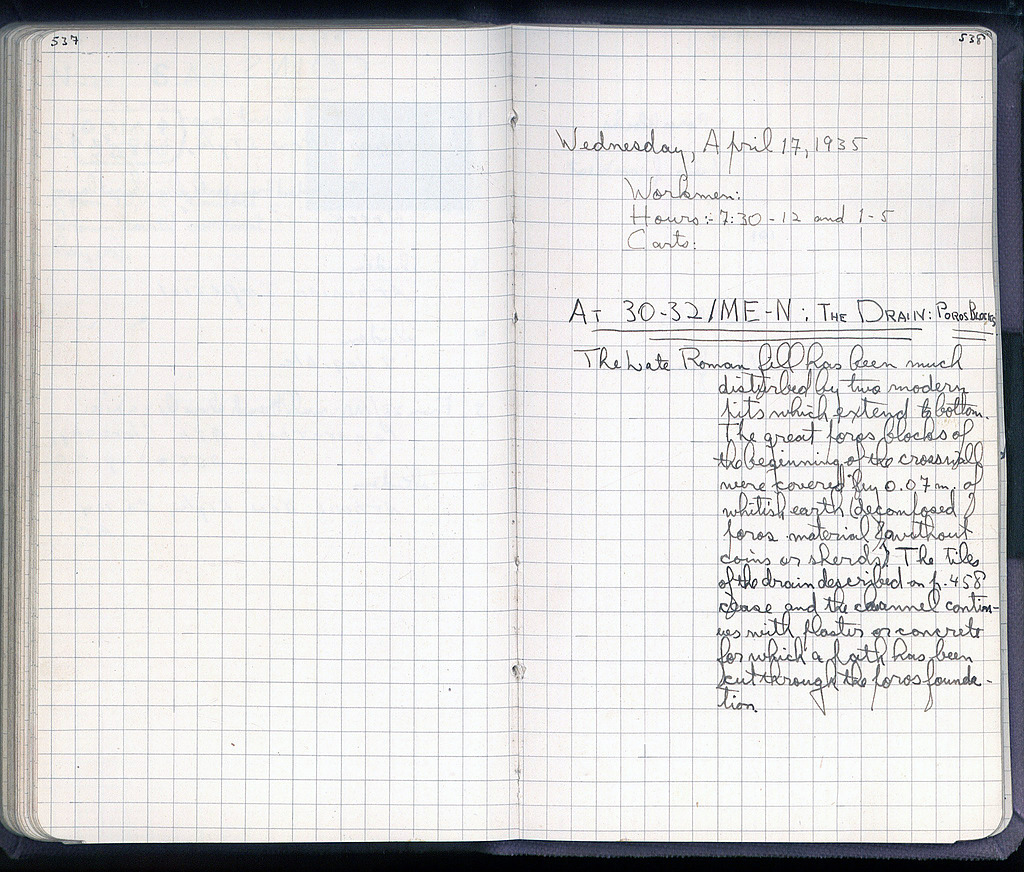 537
538
Wednesday, April 17, 1935
Workmen:
Hours:- 7:30-12 and 1-5
Carts:
AT 30-32/ME-N: THE DRAIN: POROS BLOCKS
The Late Roman fill has been much
disturbed by two modern
pits which extend to bottom.
The great poros blocks of
the beginning of the crosswall
were covered by 0.07 m. of
whitish earth (decomposed
poros material & without
coins or sherds). The tiles
of the drain described on p. 458
cease and the channel contin-
ues with plaster or concrete
for which a path has been
cut through the poros founda-
tion.